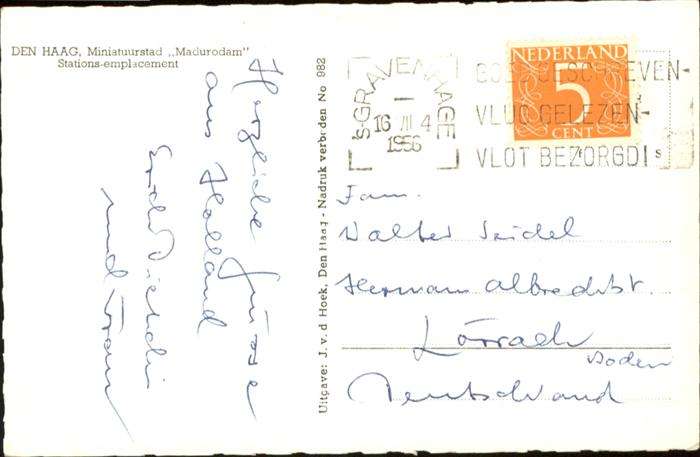 DEN HAAG, Miniatuurstad „Madurodam”
Stations-emplacement
Herzliche Grüsse
aus Holland
und Frau
Uitgave: J. v. d. Hoek, Den Haag - Nadruk verboden No 982
's-GRAVENHAGE
16 VII 4
1956
GOED GESCHREVEN-
VLUG GELEZEN-
VLOT BEZORGD!
NEDERLAND
5
CENT
Fam.
Walter Seidel
Hermann Albrechtstr.
Lörrach
Baden
Deutschland